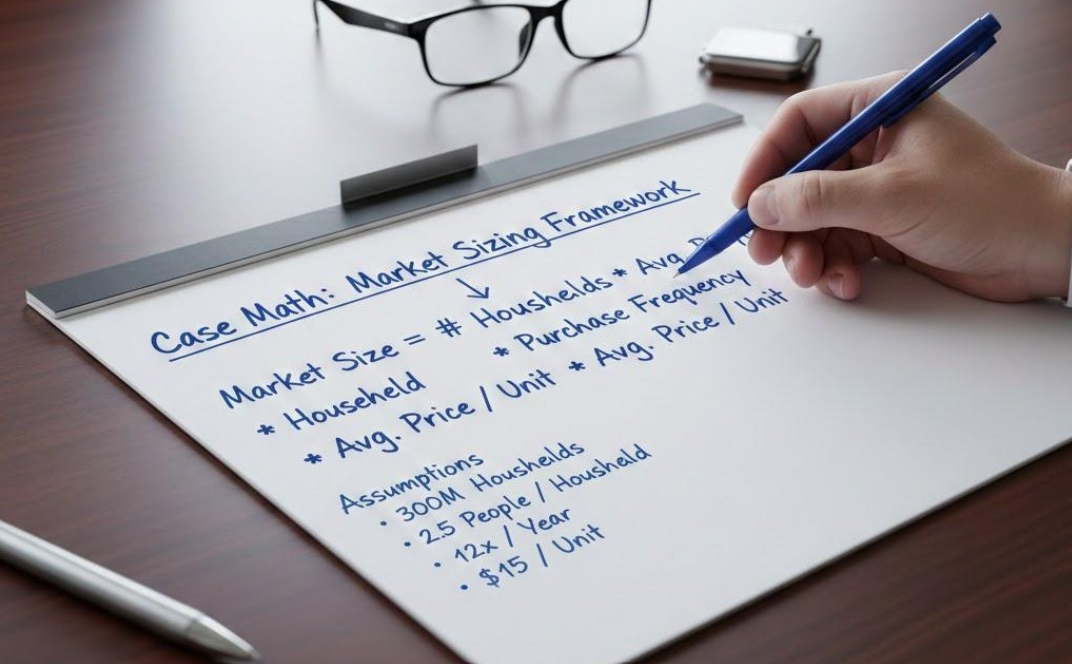 Case Math: Market Sizing Framework
Market Size = # Housheılds * Avg.
* Househeld * Purchase Frequency
* Avg. Price / Unit * Avg. Price / Unit
Assumptions
• 300M Housheılds
• 2.5 People / Househald
• 12x / Year
• $15 / Unit